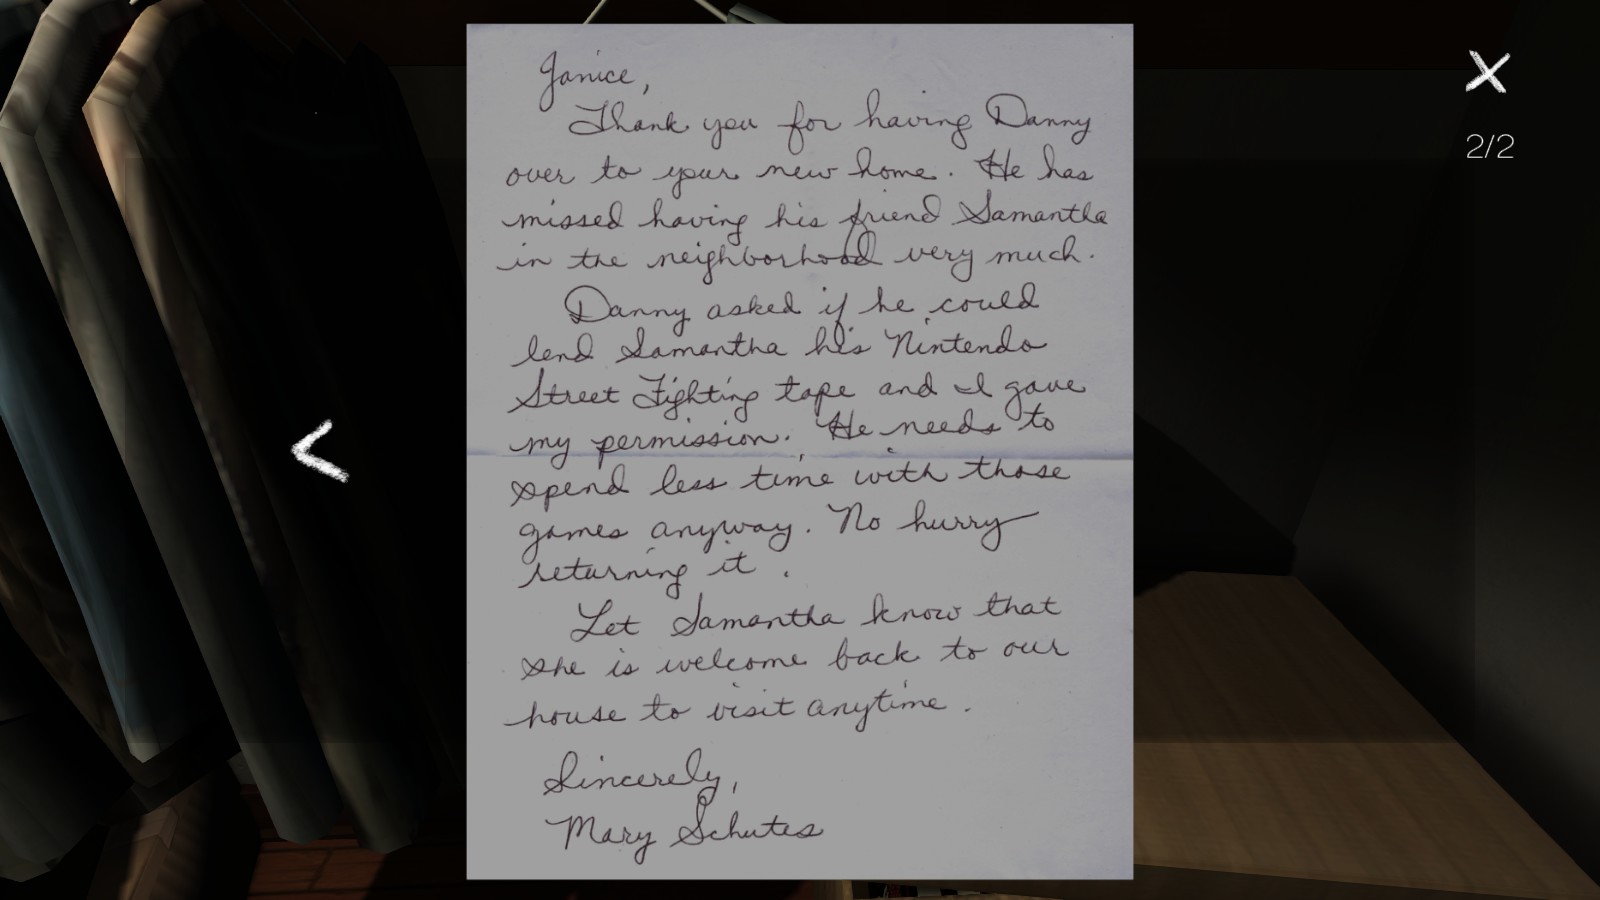 Janice,
Thank you for having Danny
over to your new home. He has
missed having his friend Samantha
in the neighborhood very much.
Danny asked if he could
lend Samantha his Nintendo
Street Fighting tape and I gave
my permission. He needs to
spend less time with those
games anyway. No hurry
returning it.
Let Samantha know that
she is welcome back to our
house to visit anytime.
Sincerely,
Mary Schutes
2/2